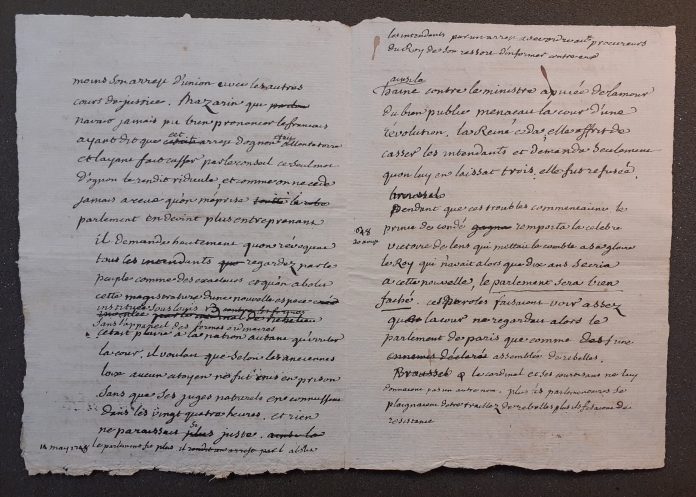 moins son arrest d'union avec les autres
cours de justice, Mazarin qui
navait jamais pu bien prononcer le francais
ayant dit que cet arrest d'ognon etoit attentatoire
et layant fait casser par le conseil ce seul mot
d'ognon le rendit ridicule, et comme on ne cede
jamais a ceux quon meprise le
parlement en devint plus entreprenant
il demanda hautement quon revoquat
tous les intendants regardez par le
peuple comme des exacteurs et quon abolit
cette magistrature d'une nouvelle espece
instituée sous louis 13
sans l'appareil des formes ordinaires
c'etait plaire a la nation autant qu'irriter
la cour. il voulait que selon les anciennes
loix aucun citoyen ne fut mis en prison
sans que ses juges naturels en connussent
dans les vingt quatre heures. et rien
ne paraissait si juste.
14 may 1648 le parlement fit plus il abolit
les intendants par un arrest avec ordre aux procureurs
du Roy de son ressort d'informer contre eux
ainsi la
haine contre le ministre apuiée de lamour
du bien public menacait la cour d'une
revolution, la Reine ceda elle offrit de
casser les intendants et demanda seulement
quon luy en laissat trois. elle fut refusée.
pendant que ces troubles commencaient le
prince de condé remporta la celebre
victoire de lens qui mettait le comble a sa gloire
le Roy qui n'avait alors que dix ans secria
a cette nouvelle, le parlement sera bien
faché. ces paroles faisaient voir assez
que la cour ne regardait alors le
parlement de paris que comme une
assemblée de rebelles.
le cardinal et ses courtisans ne luy
donnaient pas un autre nom. plus les parlementaires se
plaignaient d'etre traittez de rebelles plus ils faisaient de
resistance